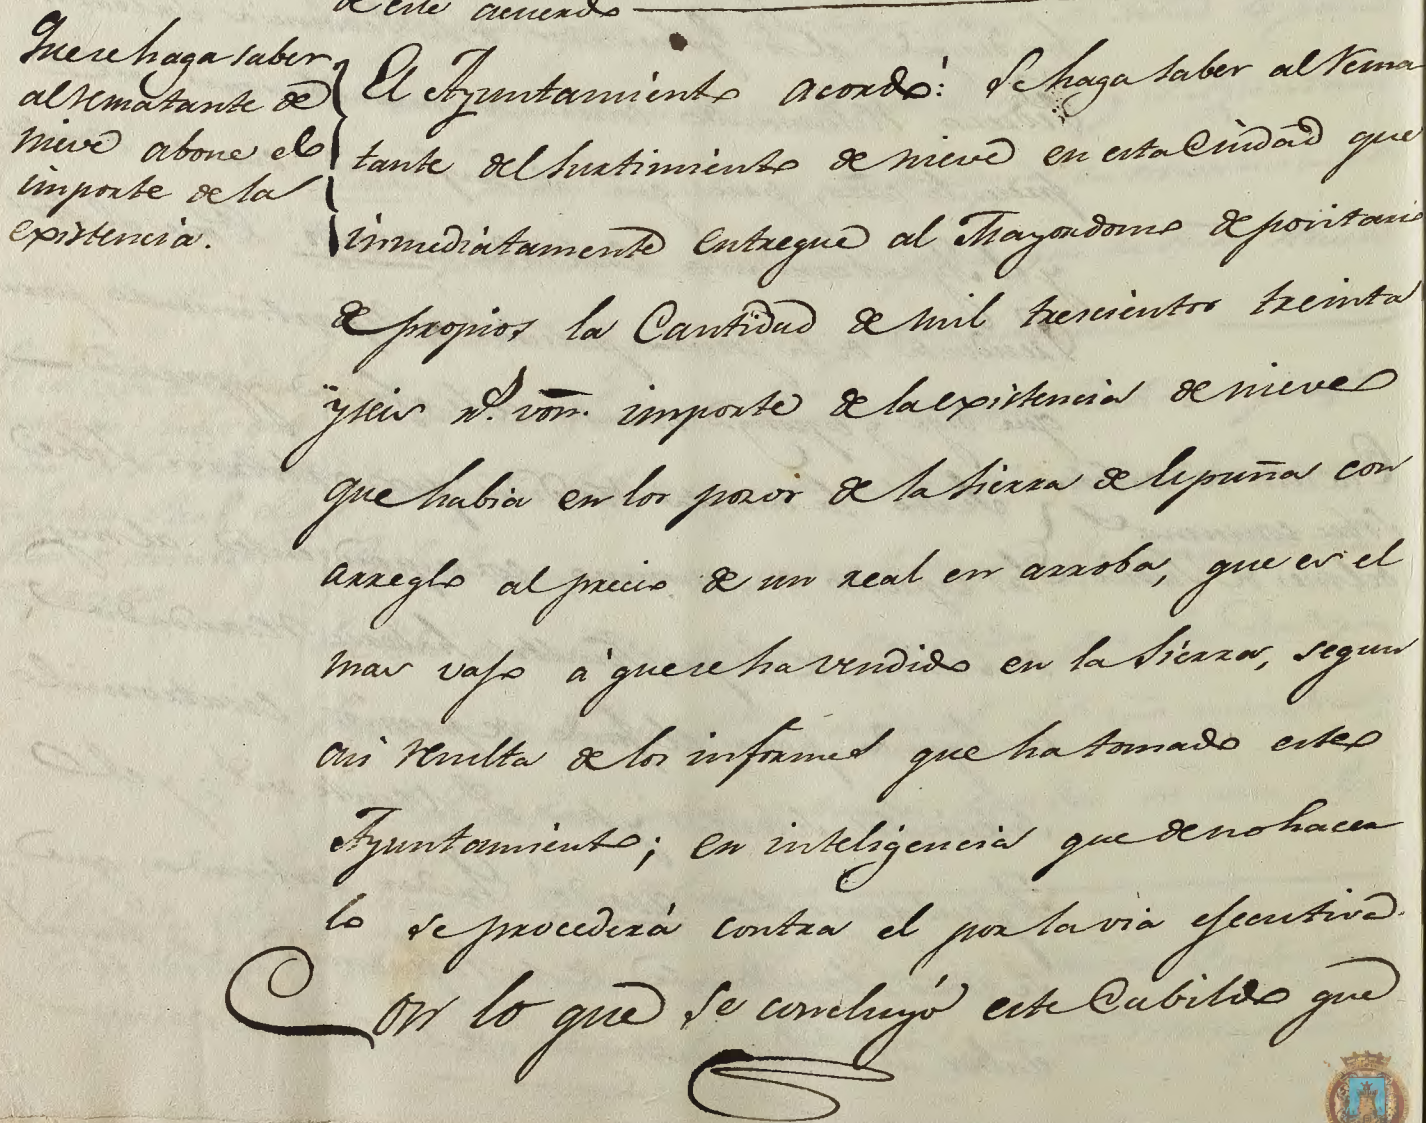 de este acuerdo
Que se haga saber
al rematante de
nieve abone el
importe de la
existencia.
El Ayuntamiento acordó: Se haga saber al rema
tante del surtimiento de nieve en esta Ciudad que
inmediatamente entregue al Mayordomo depositario
de propios la Cantidad de mil trescientos treinta
y seis rs. von. importe de la existencia de nieve
que habia en los pozos de la Sierra de Espuña con
arreglo al precio de un real en arroba, que es el
mas vajo á que se ha vendido en la Sierra, segun
asi resulta de los informes que ha tomado este
Ayuntamiento; en inteligencia que de no hacer
lo se procederá contra el por la via ejecutiva.
Con lo que se concluyó este Cabildo que